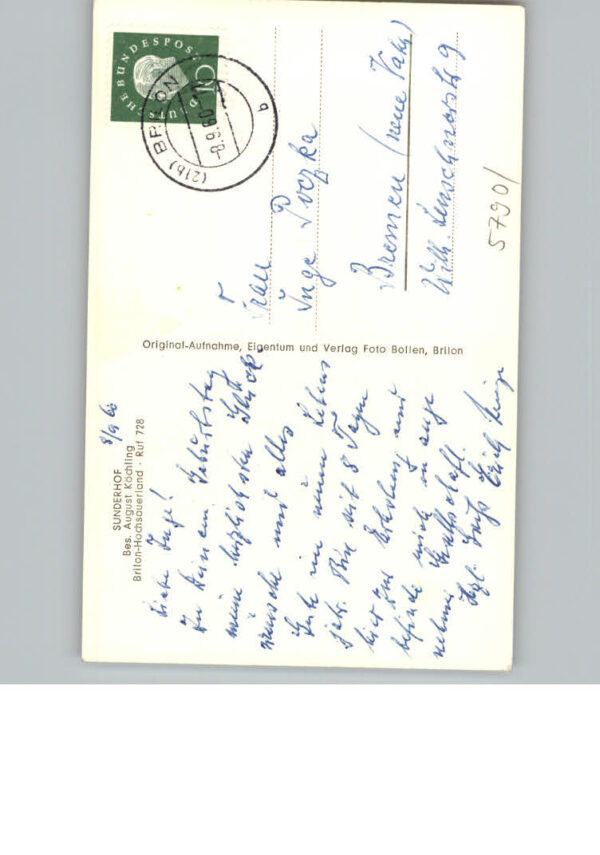 SUNDERHOF
Bes. August Köchling
Brilon-Hochsauerland · Ruf 728
8/9 60
Liebe Inge!
Zu Deinem Geburtstag
meine herzlichsten Glück-
wünsche und alles
Gute im neuen Lebens
jahr. Bin seit 8 Tagen
hier zur Erholung und
befinde mich in ange
nehmer Gesellschaft.
Hzl. Gruß Erich
Original-Aufnahme, Eigentum und Verlag Foto Bollen, Brilon
DEUTSCHE BUNDESPOST
10
(21b) BRILON
-8.9.60
b
Frau
Inge
Bremen (neue Vahr)
Wilh. Leuschnerstr 9
5790/